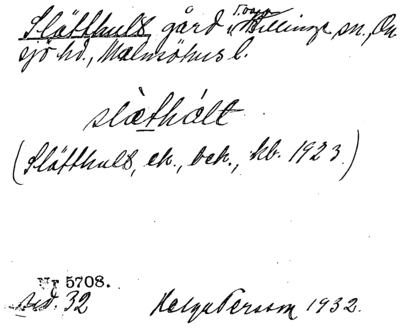 Slätthult, gård i Billinge sn., On
sjö hd., Malmöhus l.
slȁthált
(Slätthult, ek., bek., kb. 1923.)
Nr 5708.
sid. 32 Helge Persson 1932.